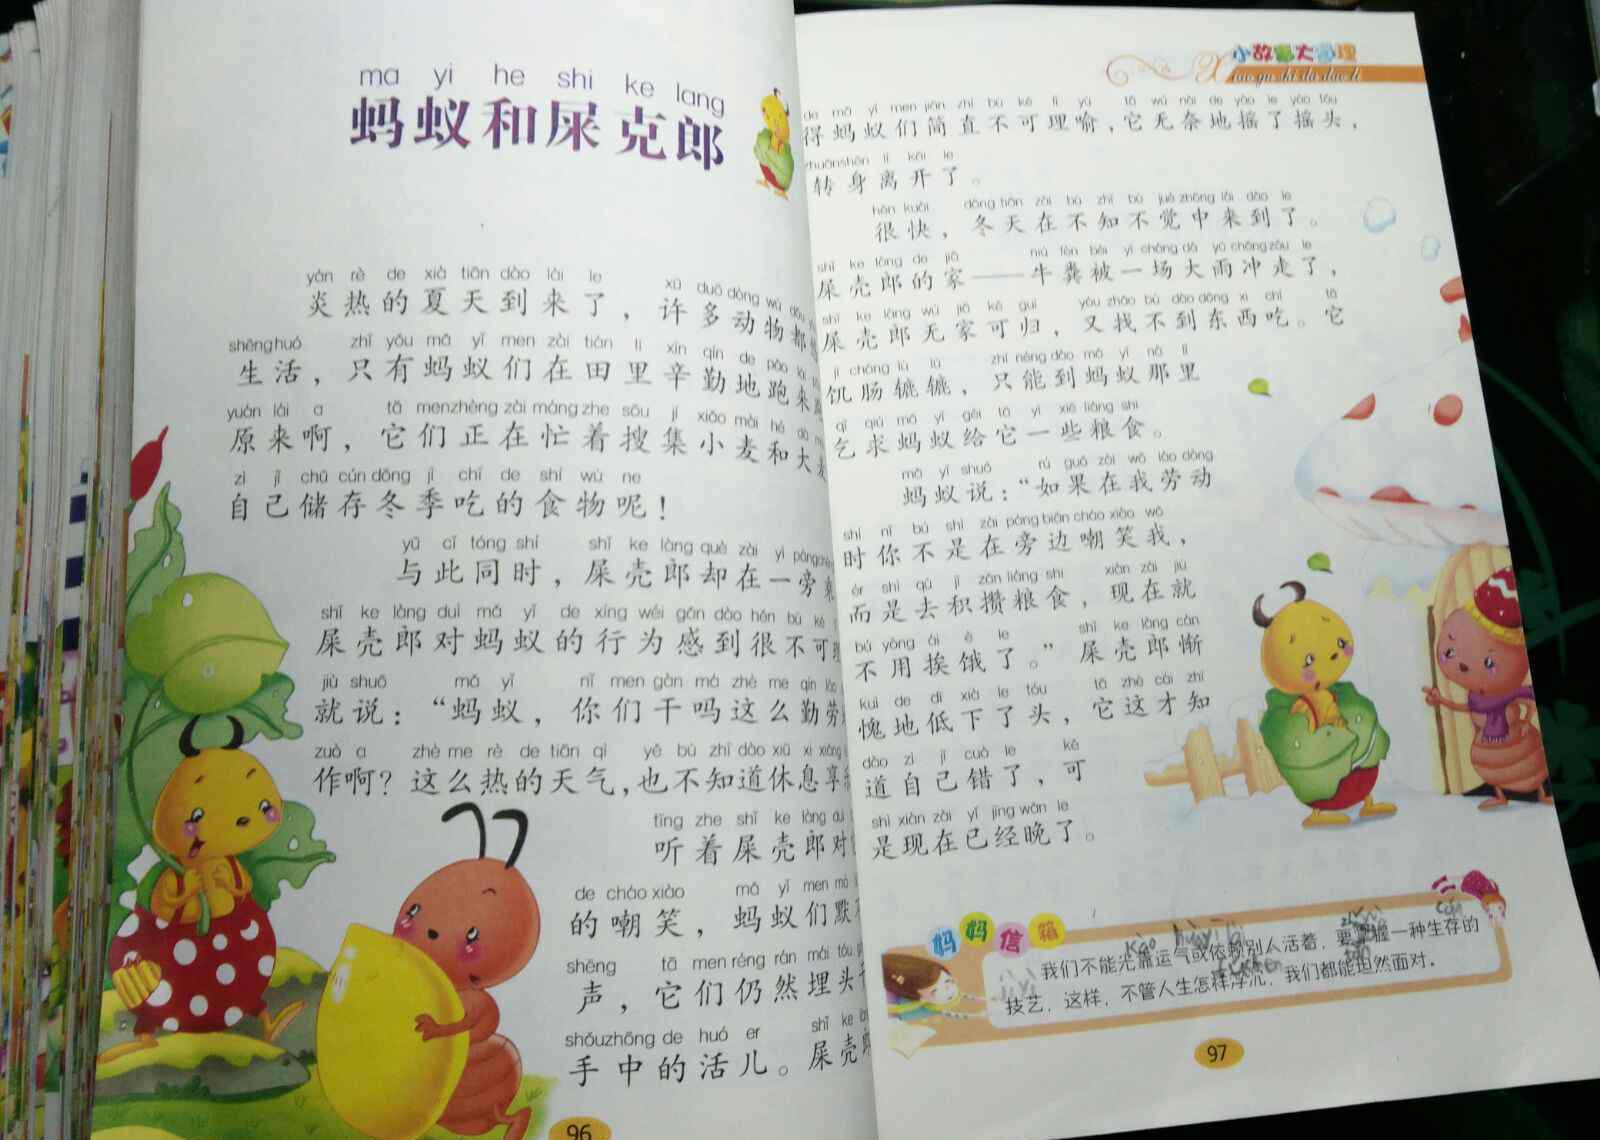 ma yi he shi ke lang
蚂蚁和屎克郎
yán rè de xià tiān dào lái le xǔ duō dòng wù dōu
炎热的夏天到来了，许多动物都
shēng huó zhǐ yǒu mǎ yǐ men zài tián li xīn qín de pǎo lái
生活，只有蚂蚁们在田里辛勤地跑来
yuán lái a tā men zhèng zài máng zhe sōu jí xiǎo mài hé dà
原来啊，它们正在忙着搜集小麦和大
zì jǐ chǔ cún dōng jì chī de shí wù ne
自己储存冬季吃的食物呢！
yǔ cǐ tóng shí shǐ ke làng què zài yì páng
与此同时，屎壳郎却在一旁
shǐ ke làng duì mǎ yǐ de xíng wéi gǎn dào hěn bù kě
屎壳郎对蚂蚁的行为感到很不可
jiù shuō mǎ yǐ nǐ men gàn má zhè me qín láo
就说：“蚂蚁，你们干吗这么勤劳
zuò a zhè me rè de tiān qì yě bù zhī dào xiū xi xiǎng
作啊？这么热的天气，也不知道休息享
tīng zhe shǐ ke làng duì
听着屎壳郎对
de cháo xiào mǎ yǐ men mò
的嘲笑，蚂蚁们默
shēng tā men réng rán mái tóu
声，它们仍然埋头
shǒu zhōng de huó er shǐ ke
手中的活儿。屎壳
96
小故事大道理
Xiao gu shi da dao li
de mǎ yǐ men jiǎn zhí bù kě lǐ yù tā wú nài de yáo le yáo tóu
得蚂蚁们简直不可理喻，它无奈地摇了摇头，
zhuǎn shēn lí kāi le
转身离开了。
hěn kuài dōng tiān zài bù zhī bù jué zhōng lái dào le
很快，冬天在不知不觉中来到了。
shǐ ke làng de jiā niú fèn bèi yì cháng dà yǔ chōng zǒu le
屎壳郎的家——牛粪被一场大雨冲走了，
shǐ ke làng wú jiā kě guī yòu zhǎo bú dào dōng xi chī tā
屎壳郎无家可归，又找不到东西吃。它
jī cháng lù lù zhǐ néng dào mǎ yǐ nà lǐ
饥肠辘辘，只能到蚂蚁那里
qǐ qiú mǎ yǐ gěi tā yì xiē liáng shi
乞求蚂蚁给它一些粮食。
mǎ yǐ shuō rú guǒ zài wǒ láo dòng
蚂蚁说：“如果在我劳动
shí nǐ bú shì zài páng biān cháo xiào wǒ
时你不是在旁边嘲笑我，
ér shì qù jī zǎn liáng shi xiàn zài jiù
而是去积攒粮食，现在就
bú yòng ái è le shǐ ke làng cán
不用挨饿了。”屎壳郎惭
kuì de dī xià le tóu tā zhè cái zhī
愧地低下了头，它这才知
dào zì jǐ cuò le kě
道自己错了，可
shì xiàn zài yǐ jīng wǎn le
是现在已经晚了。
妈妈信箱
kào
我们不能光靠运气或依赖别人活着，要掌握一种生存的
技艺，这样，不管人生怎样浮沉，我们都能坦然面对。
97